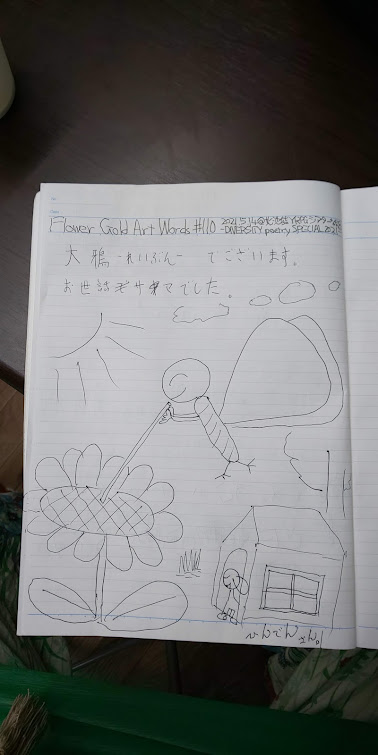 Flower Gold Art Words #110 2021.5.14@
-DIVERSITY poetry SPECIAL 2021
大鴉 -れいぶん- でございます。
お世話 でした。
さん。